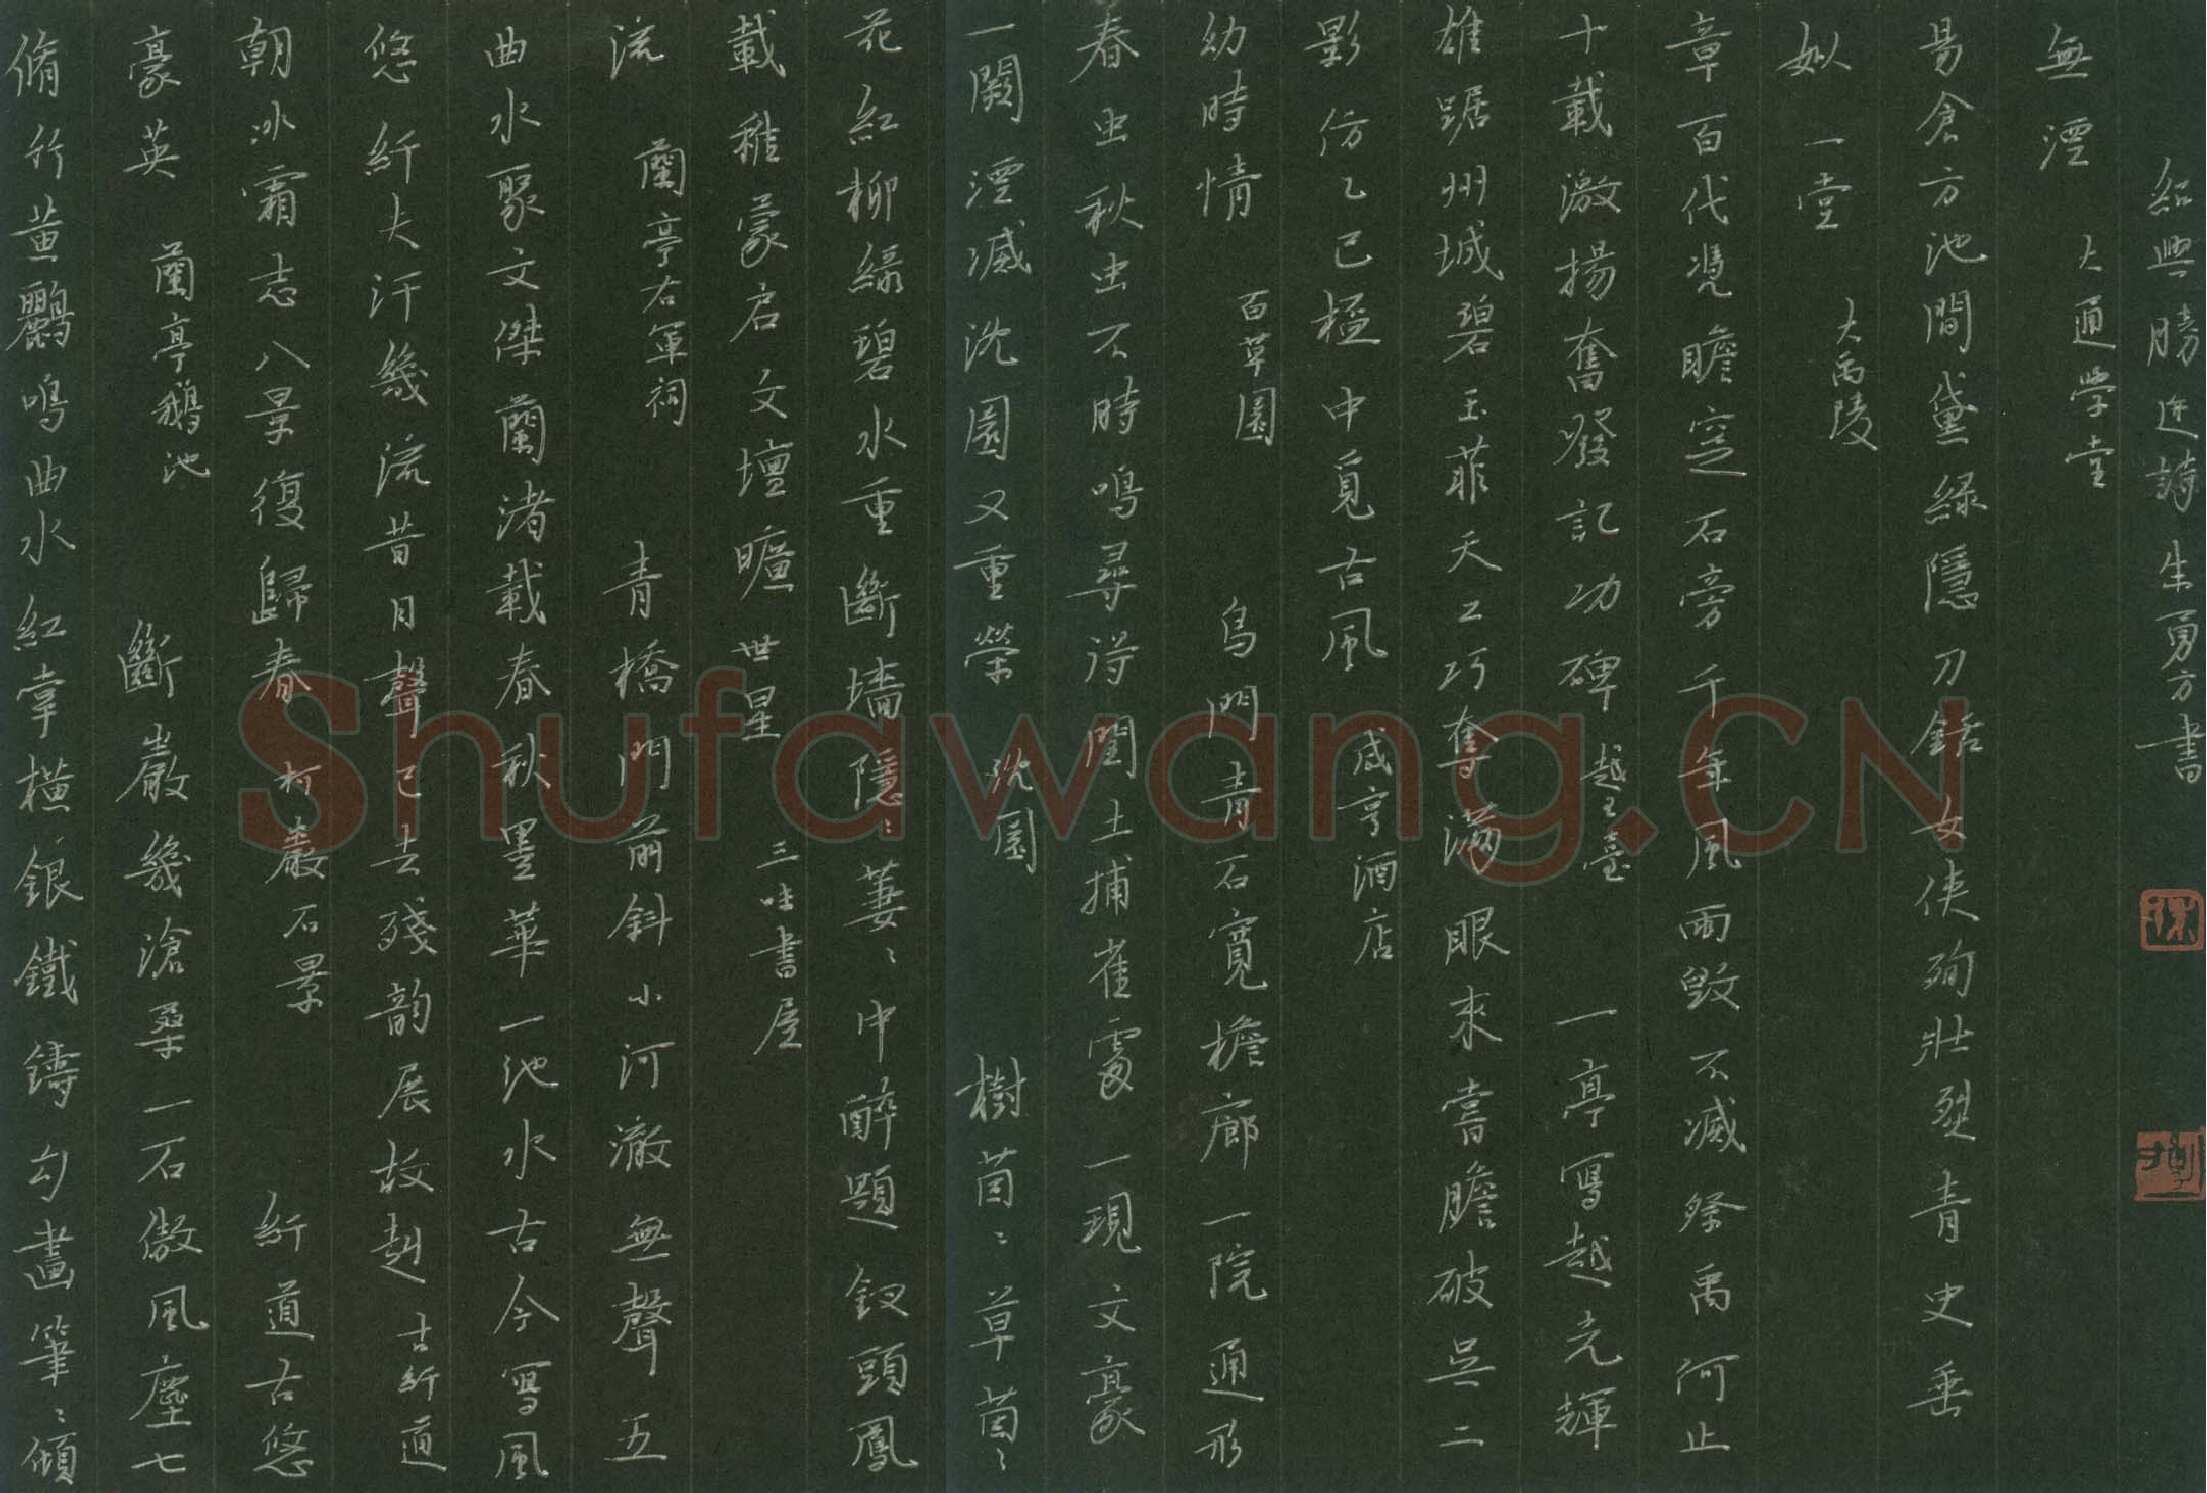 脩竹黃鸝鳴曲水紅掌橫銀鐵鑄勾畫筆〻傾
豪英 蘭亭鵝池 斷巖幾滄桑一石傲風塵七
朝冰霜志八景復歸春 柯巖石景 纤道古悠
悠纤夫汗幾流昔日聲已去殘韵展故赳 古纤道
曲水聚文傑蘭渚載春秋墨華一池水古今寫風
流 蘭亭右軍祠 青橋門前斜小河澈無聲五
載稚蒙启文壇曠世星 三味書屋
花紅柳綠碧水重斷墻隱〻萋〻中醉題釵頭鳳
一闋湮滅沈園又重榮 沈園 樹茵〻草茵〻
春虫秋虫不時鳴尋得閏土捕雀處一現文豪
幼時情 百草園 烏門青石寬檐廊一院通形
影仿乙己極中覓古風 咸亨酒店
雄踞州城碧玉菲天工巧奪滿眼來嘗膽破吳二
十載激揚奮發記功碑 越王臺 一亭寫越光輝
章百代凭瞻窆石旁千年風雨毀不滅祭禹何止
姒一堂 大禹陵
易倉方池間黛綠隱刀銛女俠殉壯烈青史垂
無湮 大通学堂
紹興勝迹詩 生勇方書
Shufawang.CN